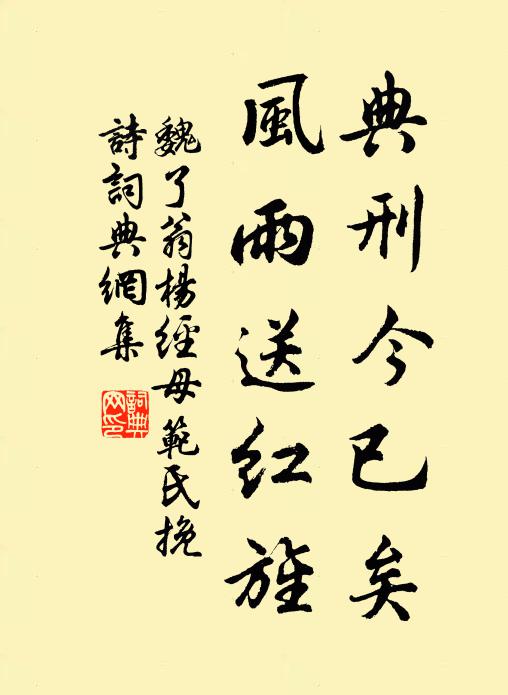 典刑今已矣
風雨送紅旌
魏了翁楊經母範氏挽
詩詞典網集
詞典網印